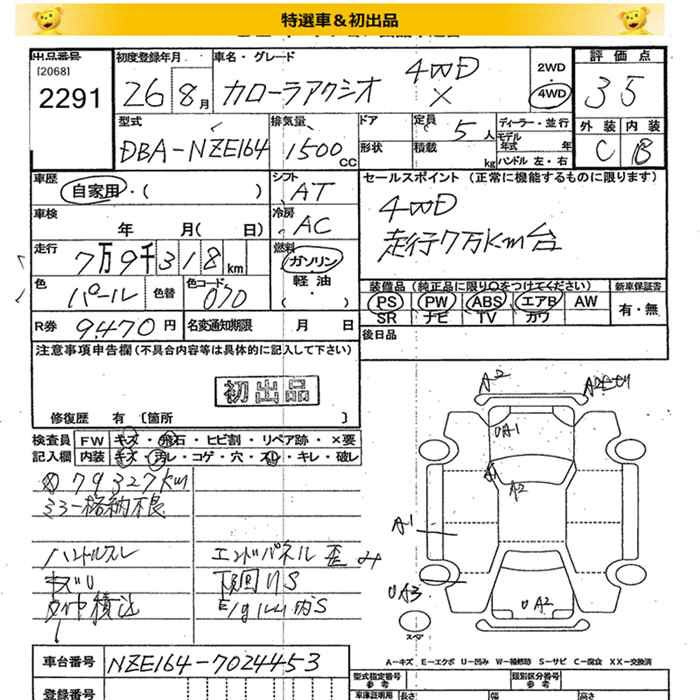 特選車＆初出品
出品番号 初度登録年月 車名・グレード 2WD 評価点
[2068] 4WD
2291 26 8月 カローラアクシオ X 4WD 35
型式 排気量 ドア 定員 5人 ディーラー・並行 外装 内装
モデル年式 年
DBA-NZE164 1500cc 形状 積載 kg ハンドル 左・右 C B
車歴 自家用・( ) シフト AT セールスポイント (正常に機能するものに限ります)
車検 年 月( 日) 冷房 AC 4WD
走行 7万9千318km 燃料 ガソリン 走行7万km台
軽油
色 パール 色替 色コード 070 ( ・ ) 装備品 (純正品に限り○をつけてください) 新車保証書
PS PW ABS エアB AW 有・無
SR ナビ TV カワ
R券 9,470円 名変通知期限 月 日 後日品
注意事項申告欄 (不具合内容等は具体的に記入して下さい)
初出品
修復歴 有 〔箇所 〕
検査員 FW キズ・飛石・ヒビ割・リペア跡・×要
記入欄 内装 キズ・汚レ・コゲ・穴・スレ・キレ・破レ
79327km
ミラー格納不良
ハンドルスレ エンドパネル歪み
キズU 下回りS
タイヤ積込 E/gルーム内S
A2
UA1
A1
A2
A1
UA3
UA2
スペア
A-キズ E-エクボ U-凹み W-補修跡 S-サビ C-腐食 XX-交換済
車台番号 NZE164-7024453 型式指定番号 参考 類別区分番号 参考
登録番号 車庫証明用 長さ 幅 高さ